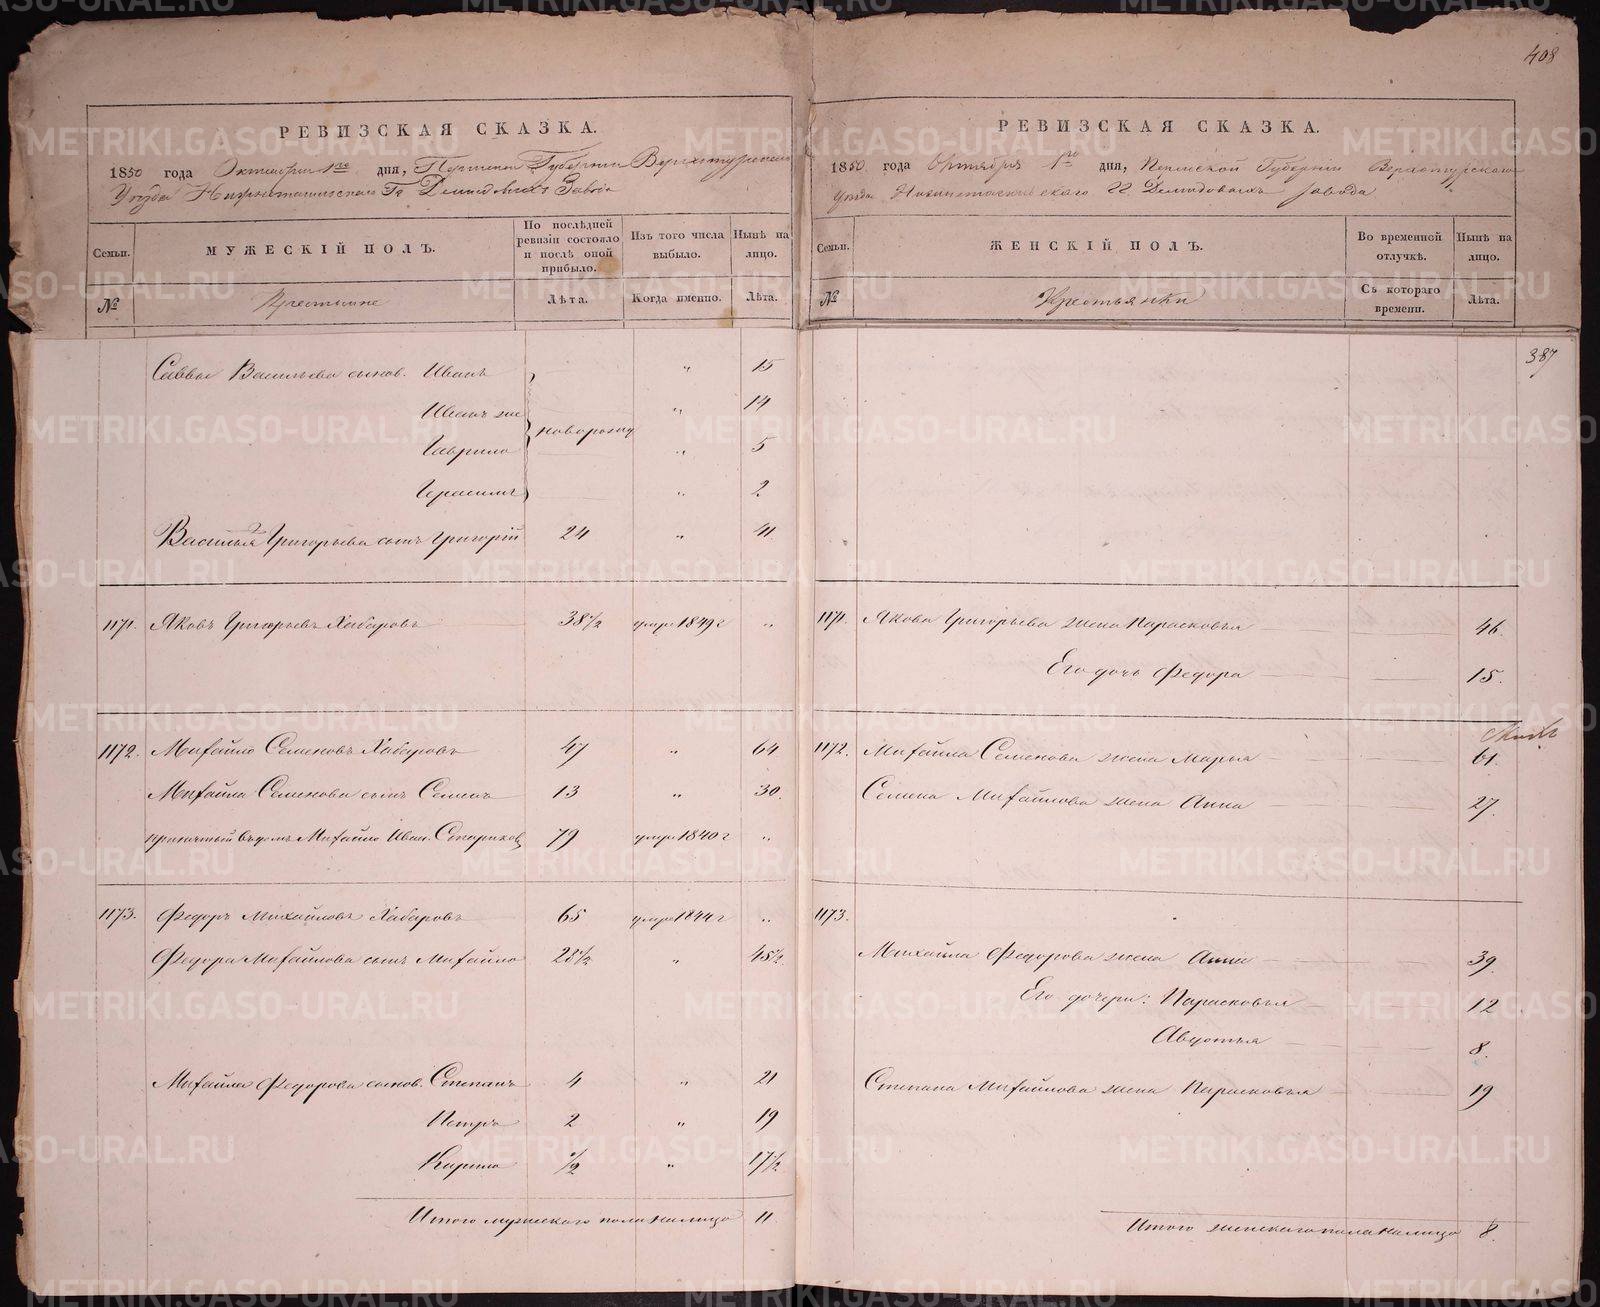 408
РЕВИЗСКАЯ СКАЗКА.
1850 года Октября 1го дня, Пермской Губернии Верхотурскаго
Уѣзда Нижнетагильскаго Гг Демидовыхъ Завода
Семьи.
МУЖЕСКІЙ ПОЛЪ.
По послѣдней ревизіи состояло и послѣ оной прибыло.
Изъ того числа выбыло.
Нынѣ на лицо.
№
Крестьяне
Лѣта.
Когда именно.
Лѣта.
Саввы Васильева сынов. Иванъ " 15
Иванъ же " 14
новорожд
Гаврило " 5
Герасимъ " 2
Василья 2 Григорьева сынъ Григорій 24 " 41
1171. Яковъ Григорьевъ Хабаровъ 38 1/2 умре 1849 г "
1172. Михайло Семеновъ Хабаровъ 47 " 64
Михайла Семенова сынъ Семенъ 13 " 30.
принятый въ домъ Михайло Иван. Стариков 79 умре 1840 г "
1173. Федоръ Михайловъ Хабаровъ 65 умре 1844 г "
Федора Михайлова сынъ Михайло 28 1/2 " 45 1/2
Михайла Федорова сынов. Степанъ 4 " 21
Петръ 2 " 19
Кирило 1/2 " 17 1/2
Итого мужескаго пола на лицо 11
РЕВИЗСКАЯ СКАЗКА.
1850 года Октября 1го дня, Пермской Губерніи Верхотурскаго
Уѣзда Нижнетагильскаго гг Демидовыхъ завода
Семьи.
ЖЕНСКІЙ ПОЛЪ.
Во временной отлучкѣ.
Нынѣ на лицо.
№
Крестьянки
Съ котораго времени.
Лѣта.
387
1171. Якова Григорьева жена Парасковья 46.
Его дочь Федора 15.
1172. Михайла Семенова жена Марья 61.
Семена Михайлова жена Анна 27.
1173.
Михайла Федорова жена Анна 39.
Его дочери: Парасковья 12
Авдотья 8.
Степана Михайлова жена Парасковья 19
Итого женскаго пола на лицо 8.
METRIKI.GASO-URAL.RU